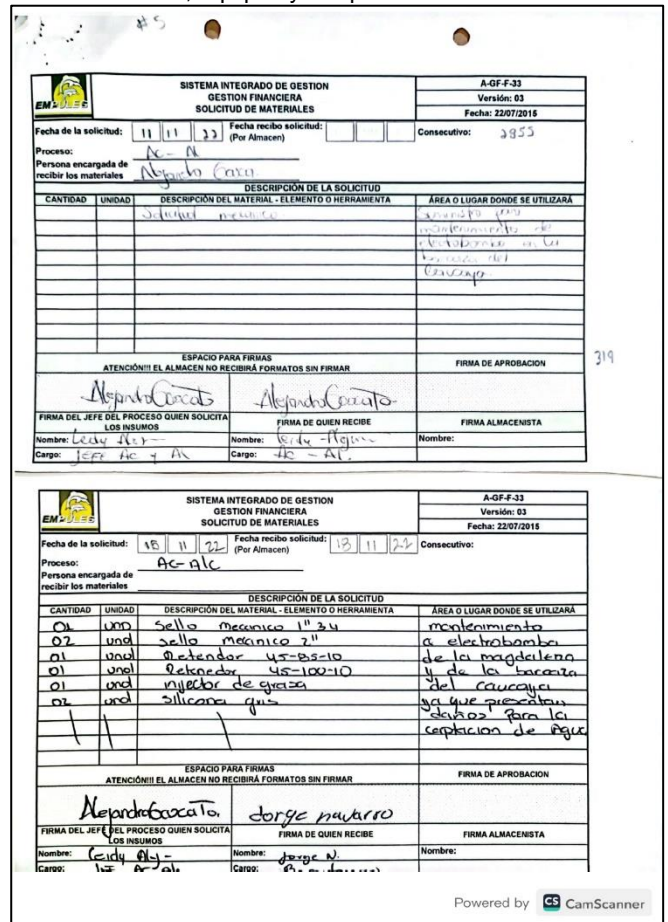 #5
EMPULEG
SISTEMA INTEGRADO DE GESTION
GESTION FINANCIERA
SOLICITUD DE MATERIALES
A-GF-F-33
Versión: 03
Fecha: 22/07/2015
Fecha de la solicitud: 11 11 22 Fecha recibo solicitud: (Por Almacen) Consecutivo: 2855
Proceso: AC - Al
Persona encargada de recibir los materiales Alejandro
DESCRIPCIÓN DE LA SOLICITUD
CANTIDAD UNIDAD DESCRIPCIÓN DEL MATERIAL - ELEMENTO O HERRAMIENTA ÁREA O LUGAR DONDE SE UTILIZARÁ
Solicitud mecanico
mantenimiento de
electobomba en la
del
Caucaya.
ESPACIO PARA FIRMAS
ATENCIÓN!!! EL ALMACEN NO RECIBIRÁ FORMATOS SIN FIRMAR
FIRMA DE APROBACION
319
FIRMA DEL JEFE DEL PROCESO QUIEN SOLICITA LOS INSUMOS FIRMA DE QUIEN RECIBE FIRMA ALMACENISTA
Nombre: Leidy Nombre: Leidy Nombre:
Cargo: Jefe Ac y Al Cargo: Ac - Al.
SISTEMA INTEGRADO DE GESTION
GESTION FINANCIERA
SOLICITUD DE MATERIALES
A-GF-F-33
Versión: 03
Fecha: 22/07/2015
Fecha de la solicitud: 18 11 22 Fecha recibo solicitud: (Por Almacen) 18 11 22 Consecutivo:
Proceso: AC-Alc
Persona encargada de recibir los materiales
DESCRIPCIÓN DE LA SOLICITUD
CANTIDAD UNIDAD DESCRIPCIÓN DEL MATERIAL - ELEMENTO O HERRAMIENTA ÁREA O LUGAR DONDE SE UTILIZARÁ
01 und Sello mecanico 1" 34 mantenimiento
02 und sello mecanico 2" a electrobomba
01 und Retendor 45-85-10 de la magdalena
01 und Reknedor 45-100-10 y de la barcaza
01 und inyector de grasa del caucaya
02 und silicona gris ya que presentan
daños para la
captacion de Agua
ESPACIO PARA FIRMAS
ATENCIÓN!!! EL ALMACEN NO RECIBIRÁ FORMATOS SIN FIRMAR
FIRMA DE APROBACION
Jorge navarro
FIRMA DEL JEFE DEL PROCESO QUIEN SOLICITA LOS INSUMOS FIRMA DE QUIEN RECIBE FIRMA ALMACENISTA
Nombre: Leidy Nombre: Jorge N. Nombre:
Cargo: Cargo:
Powered by CS CamScanner